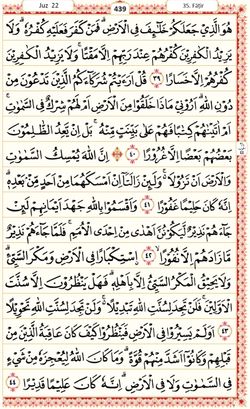 Juz 22
439
35. Fatir
هُوَ الَّذِيْ جَعَلَكُمْ خَلٰٓئِفَ فِي الْاَرْضِۗ فَمَنْ كَفَرَ فَعَلَيْهِ كُفْرُهٗۗ وَلَا
يَزِيْدُ الْكٰفِرِيْنَ كُفْرُهُمْ عِنْدَ رَبِّهِمْ اِلَّا مَقْتًاۚ وَلَا يَزِيْدُ الْكٰفِرِيْنَ
كُفْرُهُمْ اِلَّا خَسَارًا ٣٩ قُلْ اَرَءَيْتُمْ شُرَكَآءَكُمُ الَّذِيْنَ تَدْعُوْنَ مِنْ
دُوْنِ اللّٰهِۗ اَرُوْنِيْ مَاذَا خَلَقُوْا مِنَ الْاَرْضِ اَمْ لَهُمْ شِرْكٌ فِي السَّمٰوٰتِۚ
اَمْ اٰتَيْنٰهُمْ كِتٰبًا فَهُمْ عَلٰى بَيِّنَتٍ مِّنْهُۚ بَلْ اِنْ يَّعِدُ الظّٰلِمُوْنَ
بَعْضُهُمْ بَعْضًا اِلَّا غُرُوْرًا ٤٠ اِنَّ اللّٰهَ يُمْسِكُ السَّمٰوٰتِ
وَالْاَرْضَ اَنْ تَزُوْلَاۚ وَلَىِٕنْ زَالَتَآ اِنْ اَمْسَكَهُمَا مِنْ اَحَدٍ مِّنْۢ بَعْدِهٖۗ
اِنَّهٗ كَانَ حَلِيْمًا غَفُوْرًا ٤١ وَاَقْسَمُوْا بِاللّٰهِ جَهْدَ اَيْمَانِهِمْ لَىِٕنْ
جَآءَهُمْ نَذِيْرٌ لَّيَكُوْنُنَّ اَهْدٰى مِنْ اِحْدَى الْاُمَمِۚ فَلَمَّا جَآءَهُمْ نَذِيْرٌ
مَّا زَادَهُمْ اِلَّا نُفُوْرًا ٤٢ اسْتِكْبَارًا فِي الْاَرْضِ وَمَكْرَ السَّيِّئِۗ
وَلَا يَحِيْقُ الْمَكْرُ السَّيِّئُ اِلَّا بِاَهْلِهٖۗ فَهَلْ يَنْظُرُوْنَ اِلَّا سُنَّتَ
الْاَوَّلِيْنَۚ فَلَنْ تَجِدَ لِسُنَّتِ اللّٰهِ تَبْدِيْلًا ەۚ وَلَنْ تَجِدَ لِسُنَّتِ اللّٰهِ تَحْوِيْلًا
٤٣ اَوَلَمْ يَسِيْرُوْا فِي الْاَرْضِ فَيَنْظُرُوْا كَيْفَ كَانَ عَاقِبَةُ الَّذِيْنَ مِنْ
قَبْلِهِمْ وَكَانُوْٓا اَشَدَّ مِنْهُمْ قُوَّةًۗ وَمَا كَانَ اللّٰهُ لِيُعْجِزَهٗ مِنْ شَيْءٍ
فِي السَّمٰوٰتِ وَلَا فِي الْاَرْضِۗ اِنَّهٗ كَانَ عَلِيْمًا قَدِيْرًا ٤٤